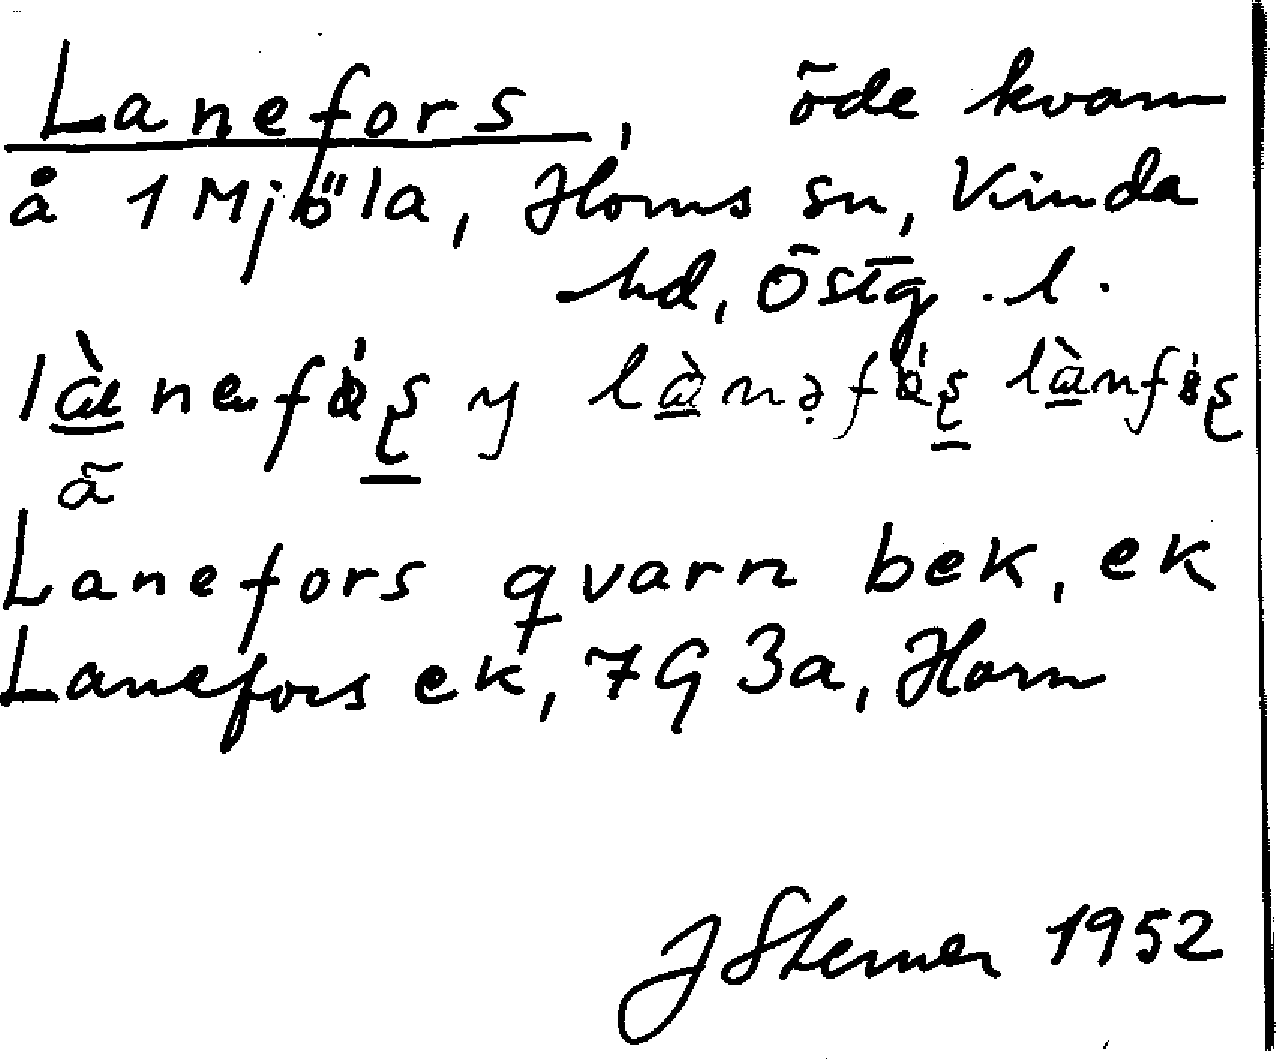 Lanefors, öde kvarn
å 1 Mjöla, Horns sn, Kinda
hd, Östg.l.
y
ā
Lanefors qvarn bek, ek
Lanefors ek, 7G 3a, Horn
J Sterner 1952